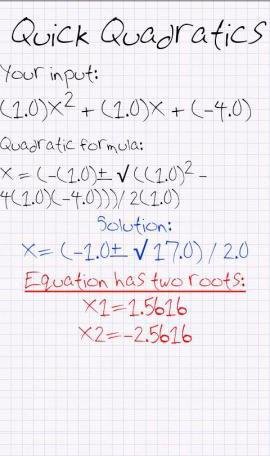 Quick Quadratics
Your input:
(1.0)x² + (1.0)x + (-4.0)
Quadratic formula:
x = (-(1.0)± √((1.0)² -
4(1.0)(-4.0)))/2(1.0)
Solution:
x= (-1.0± √17.0) / 2.0
Equation has two roots:
x1=1.5616
x2=-2.5616